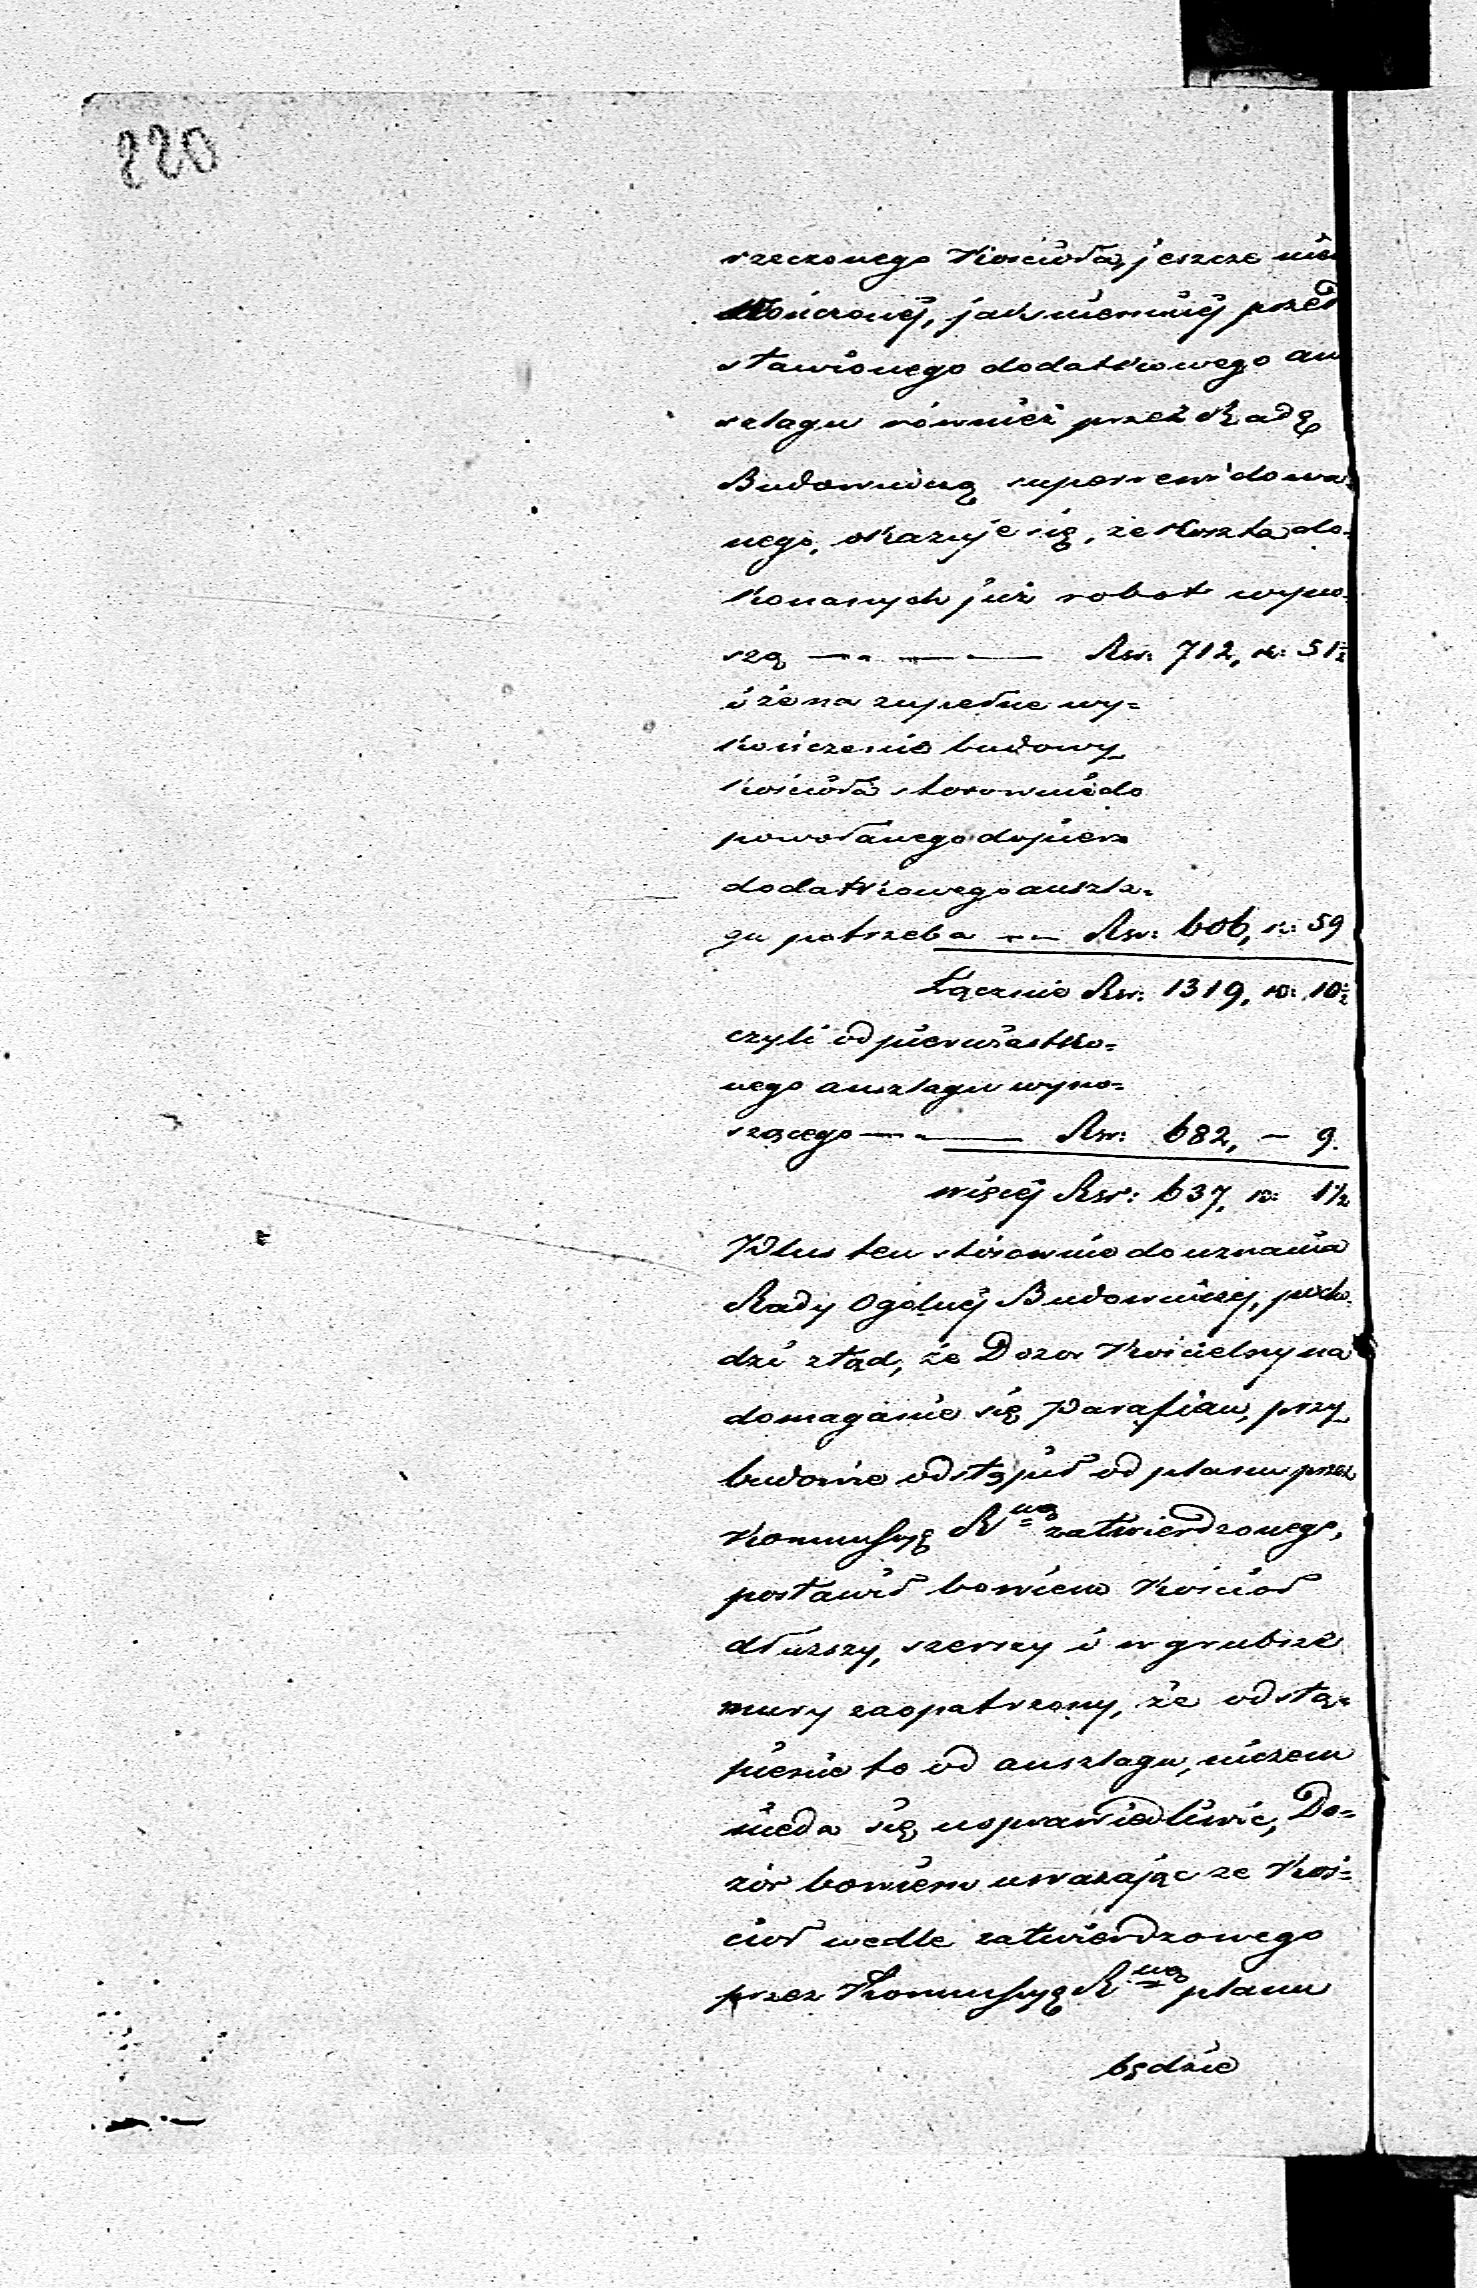 220
rzeczonego Kościoła, jeszcze nie
kończonej, jak niemniej przed
stawionego dodatkowego an
szlagu również przez Radę
Budowniczą superrewidowa=
nego, okazuje się, że koszta do=
konanych już robot wyno=
szą — — — — Rsr: 712, k: 51½
i że na zupełne wy=
kończenie budowy
Kościoła stosownie do
powołanego dopiero
dodatkowego anszla=
gu potrzeba — — Rsr: 606, k: 59
Łącznie Rsr: 1319, k: 10½
czyli od pierwiastko=
wego anszlagu wyno=
szącego — — — Rsr: 682, — 9.
więcej Rsr: 637, k: 1½
Plus ten stosownie do uznania
Rady Ogólnej Budowniczej, pocho=
dzi ztąd, że Dozor Kościelny na
domaganie się Parafian, przy
budowie odstąpił od planu przez
Kommissyę R wą zatwierdzonego,
postawił bowiem Kościoł
dłuższy, szerszy i w grubsze
mury zaopatrzony, że odstą=
pienie to od anszlagu, niczem
nieda się usprawiedliwić, Do=
zór bowiem uważając ze Koś=
cioł wedle zatwierdzonego
przez Kommissyę R wą planu
będzie